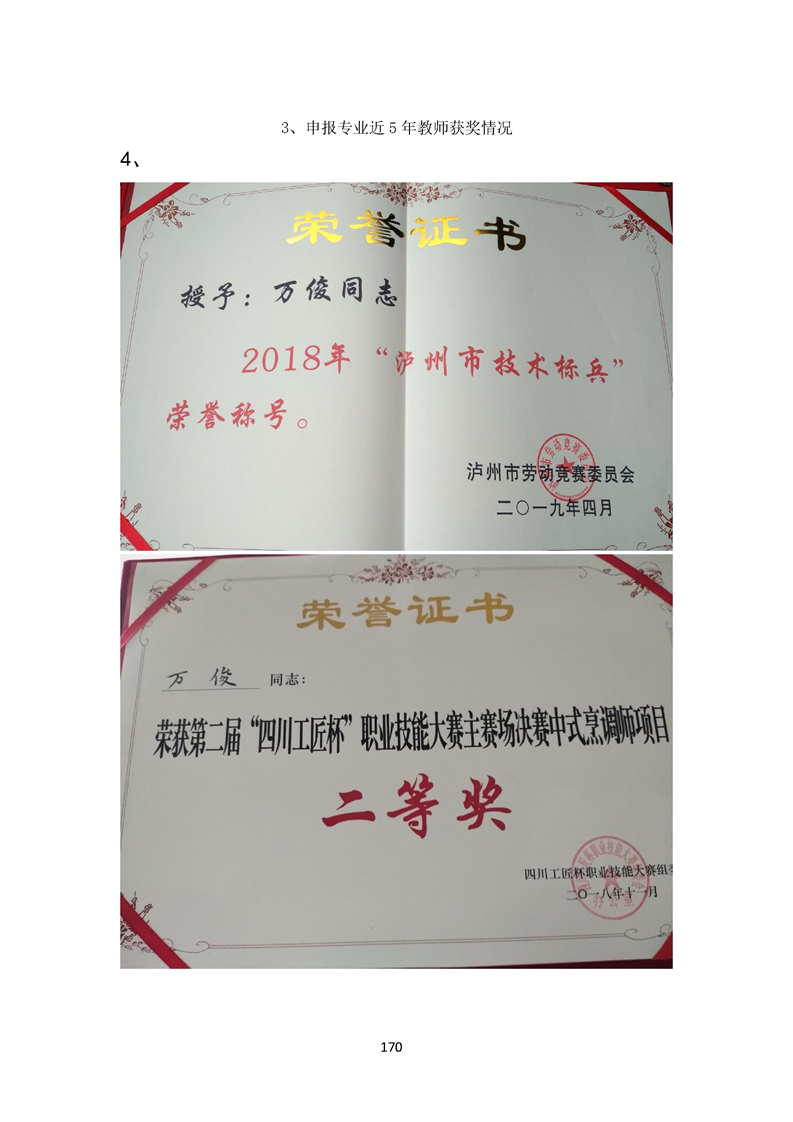 3、申报专业近 5 年教师获奖情况
4、
荣誉证书
授予：万俊同志
2018年“泸州市技术标兵”
荣誉称号。
泸州市劳动竞赛委员会
二〇一九年四月
荣誉证书
万俊 同志：
荣获第二届“四川工匠杯”职业技能大赛主赛场决赛中式烹调师项目
二等奖
四川工匠杯职业技能大赛组
二〇一八年十一月
办公室
170